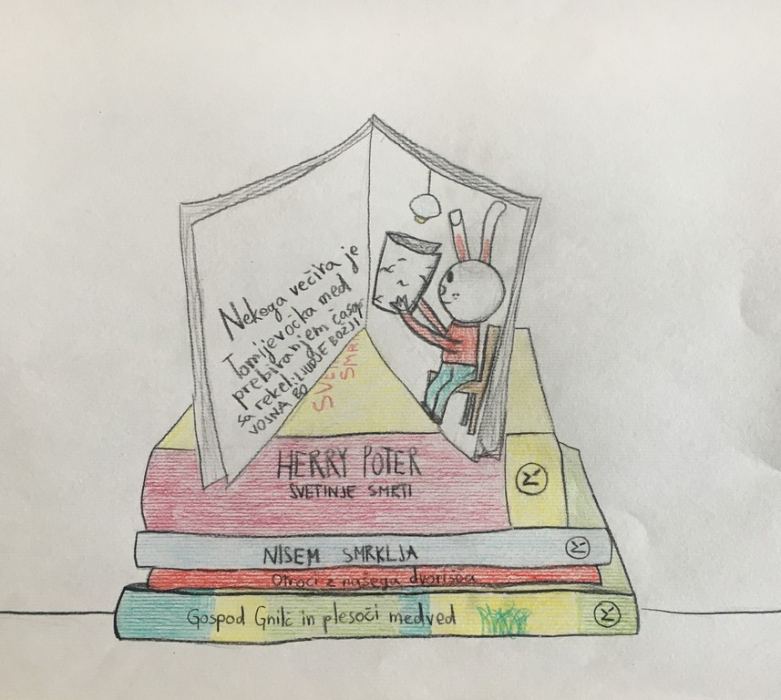 Nekoga večira je
Tomijevočka med
prebiranjem časop
sa rekel: LJUDJE BOŽJI
VOJNA BO
SVE
SMR
HERRY POTER
SVETINJE SMRTI
NISEM SMRKLJA
Otroci z našega dvorišča
Gospod Gnilč in plesoči medved